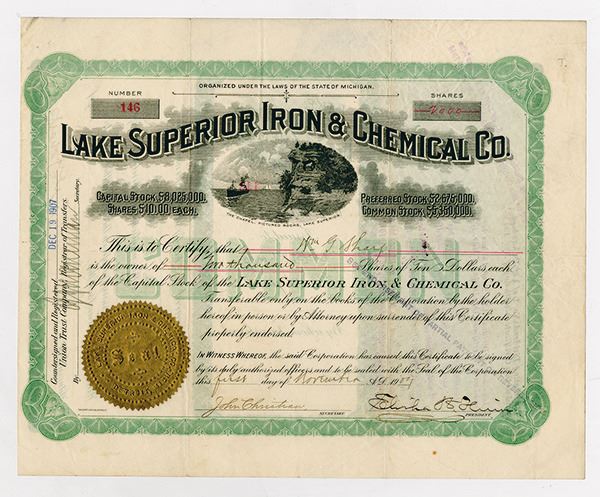 ORGANIZED UNDER THE LAWS OF THE STATE OF MICHIGAN.
NUMBER
146
SHARES
2000
LAKE SUPERIOR IRON & CHEMICAL CO.
CAPITAL STOCK $8,025,000.
SHARES $10.00 EACH.
PREFERRED STOCK $2,675,000.
COMMON STOCK $5,350,000.
THE CHAPEL, PICTURED ROCKS, LAKE SUPERIOR.
This is to Certify, that Wm G. Sharp
is the owner of Two thousand Shares of Ten Dollars each
of the Capital Stock of the LAKE SUPERIOR IRON & CHEMICAL CO.
Transferable only on the books of the Corporation by the holder
hereof in person or by Attorney upon surrender of this Certificate
properly endorsed.
IN WITNESS WHEREOF, the said Corporation has caused this Certificate to be signed
by its duly authorized officers and to be sealed with the Seal of the Corporation
this first day of November A.D. 1907
John Christian
SECRETARY
PRESIDENT
Countersigned and Registered
DEC 19 1907
Union Trust Company, Registrar of Transfers
By
Secretary.
Seal